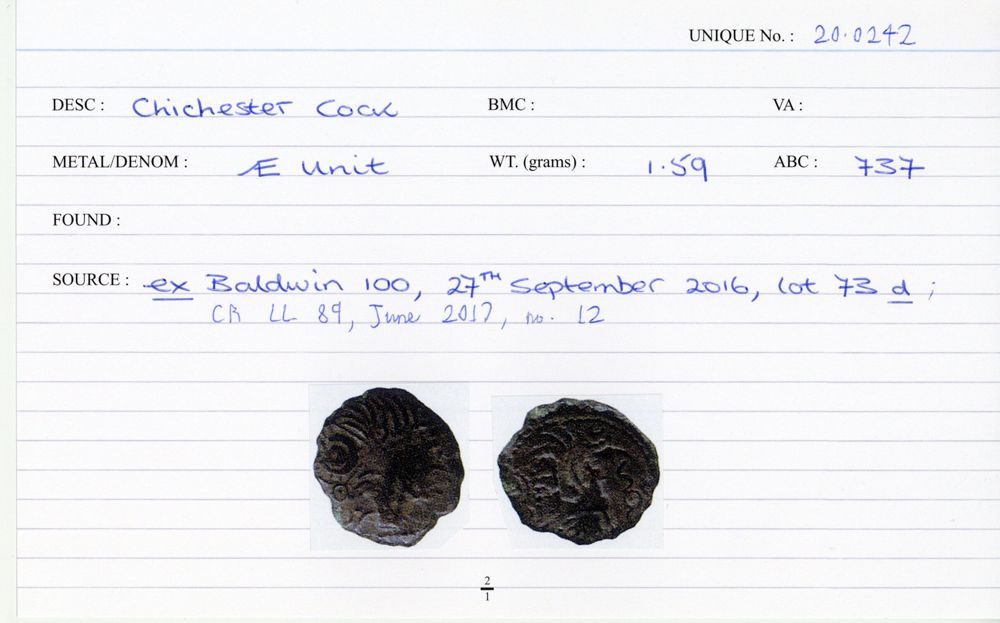 UNIQUE No. : 20.0242
DESC : Chichester Cock BMC : VA :
METAL/DENOM : Æ Unit WT. (grams) : 1.59 ABC : 737
FOUND :
SOURCE : ex Baldwin 100, 27TH September 2016, lot 73 d ;
CR LL 89, June 2017, no. 12
2
1